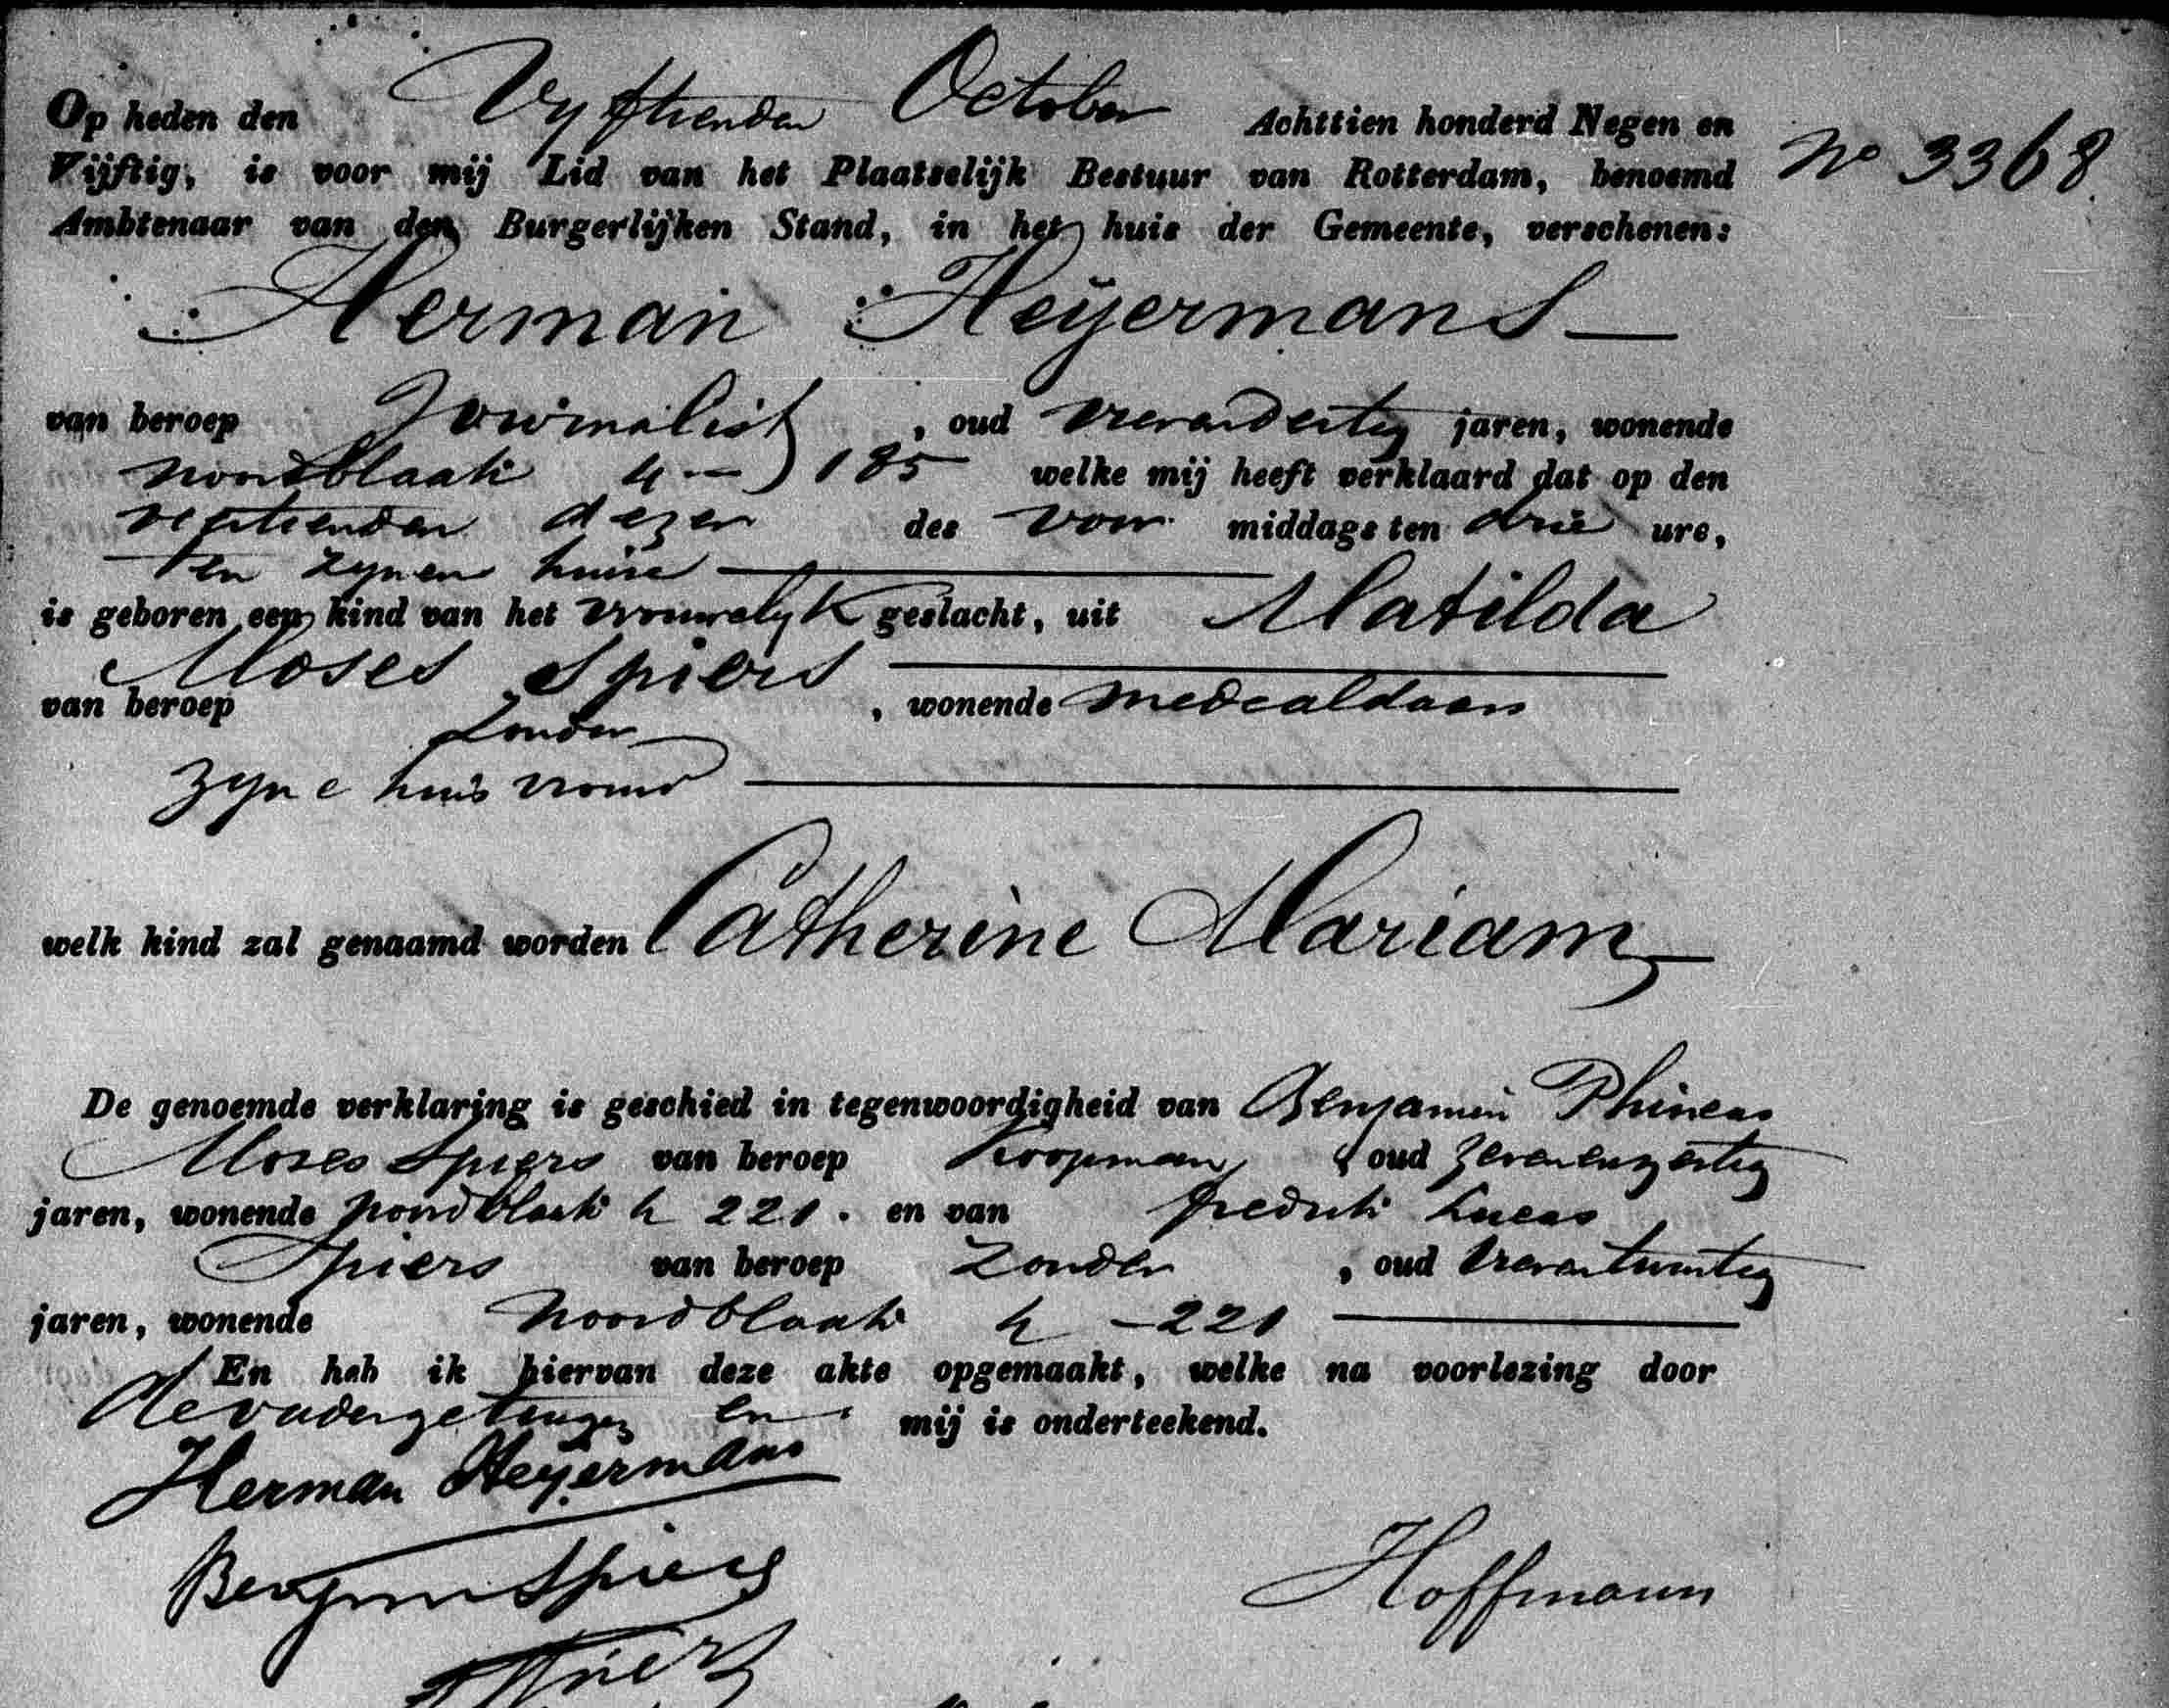 Op heden den Vyftienden October Achttien honderd Negen en
Vijftig, is voor mij Lid van het Plaatselijk Bestuur van Rotterdam, benoemd
Nº 3368.
Ambtenaar van den Burgerlijken Stand, in het huis der Gemeente, verschenen:
Herman Heijermans
van beroep Journalist, oud vierendertig jaren, wonende
noordblaak 4 185 welke mij heeft verklaard dat op den
veertienden dezer des voor middags ten drie ure,
ten zynen huise
is geboren een kind van het vrouwelyk geslacht, uit Matilda
Moses Spiers
van beroep Zonder, wonende mede aldaar
zyne huisvrouw
welk kind zal genaamd worden Catherine Mariam
De genoemde verklaring is geschied in tegenwoordigheid van Benjamin Phineas
Moses Spiers van beroep Koopman, oud zevenenzestig
jaren, wonende noordblaak 221. en van Fredrik Lucas
Spiers van beroep Zonder, oud vierentwintig
jaren, wonende noordblaak 221
En heb ik hiervan deze akte opgemaakt, welke na voorlezing door
de vader getuigen en mij is onderteekend.
Herman Heijermans
Spiers
Hoffmann
Spiers